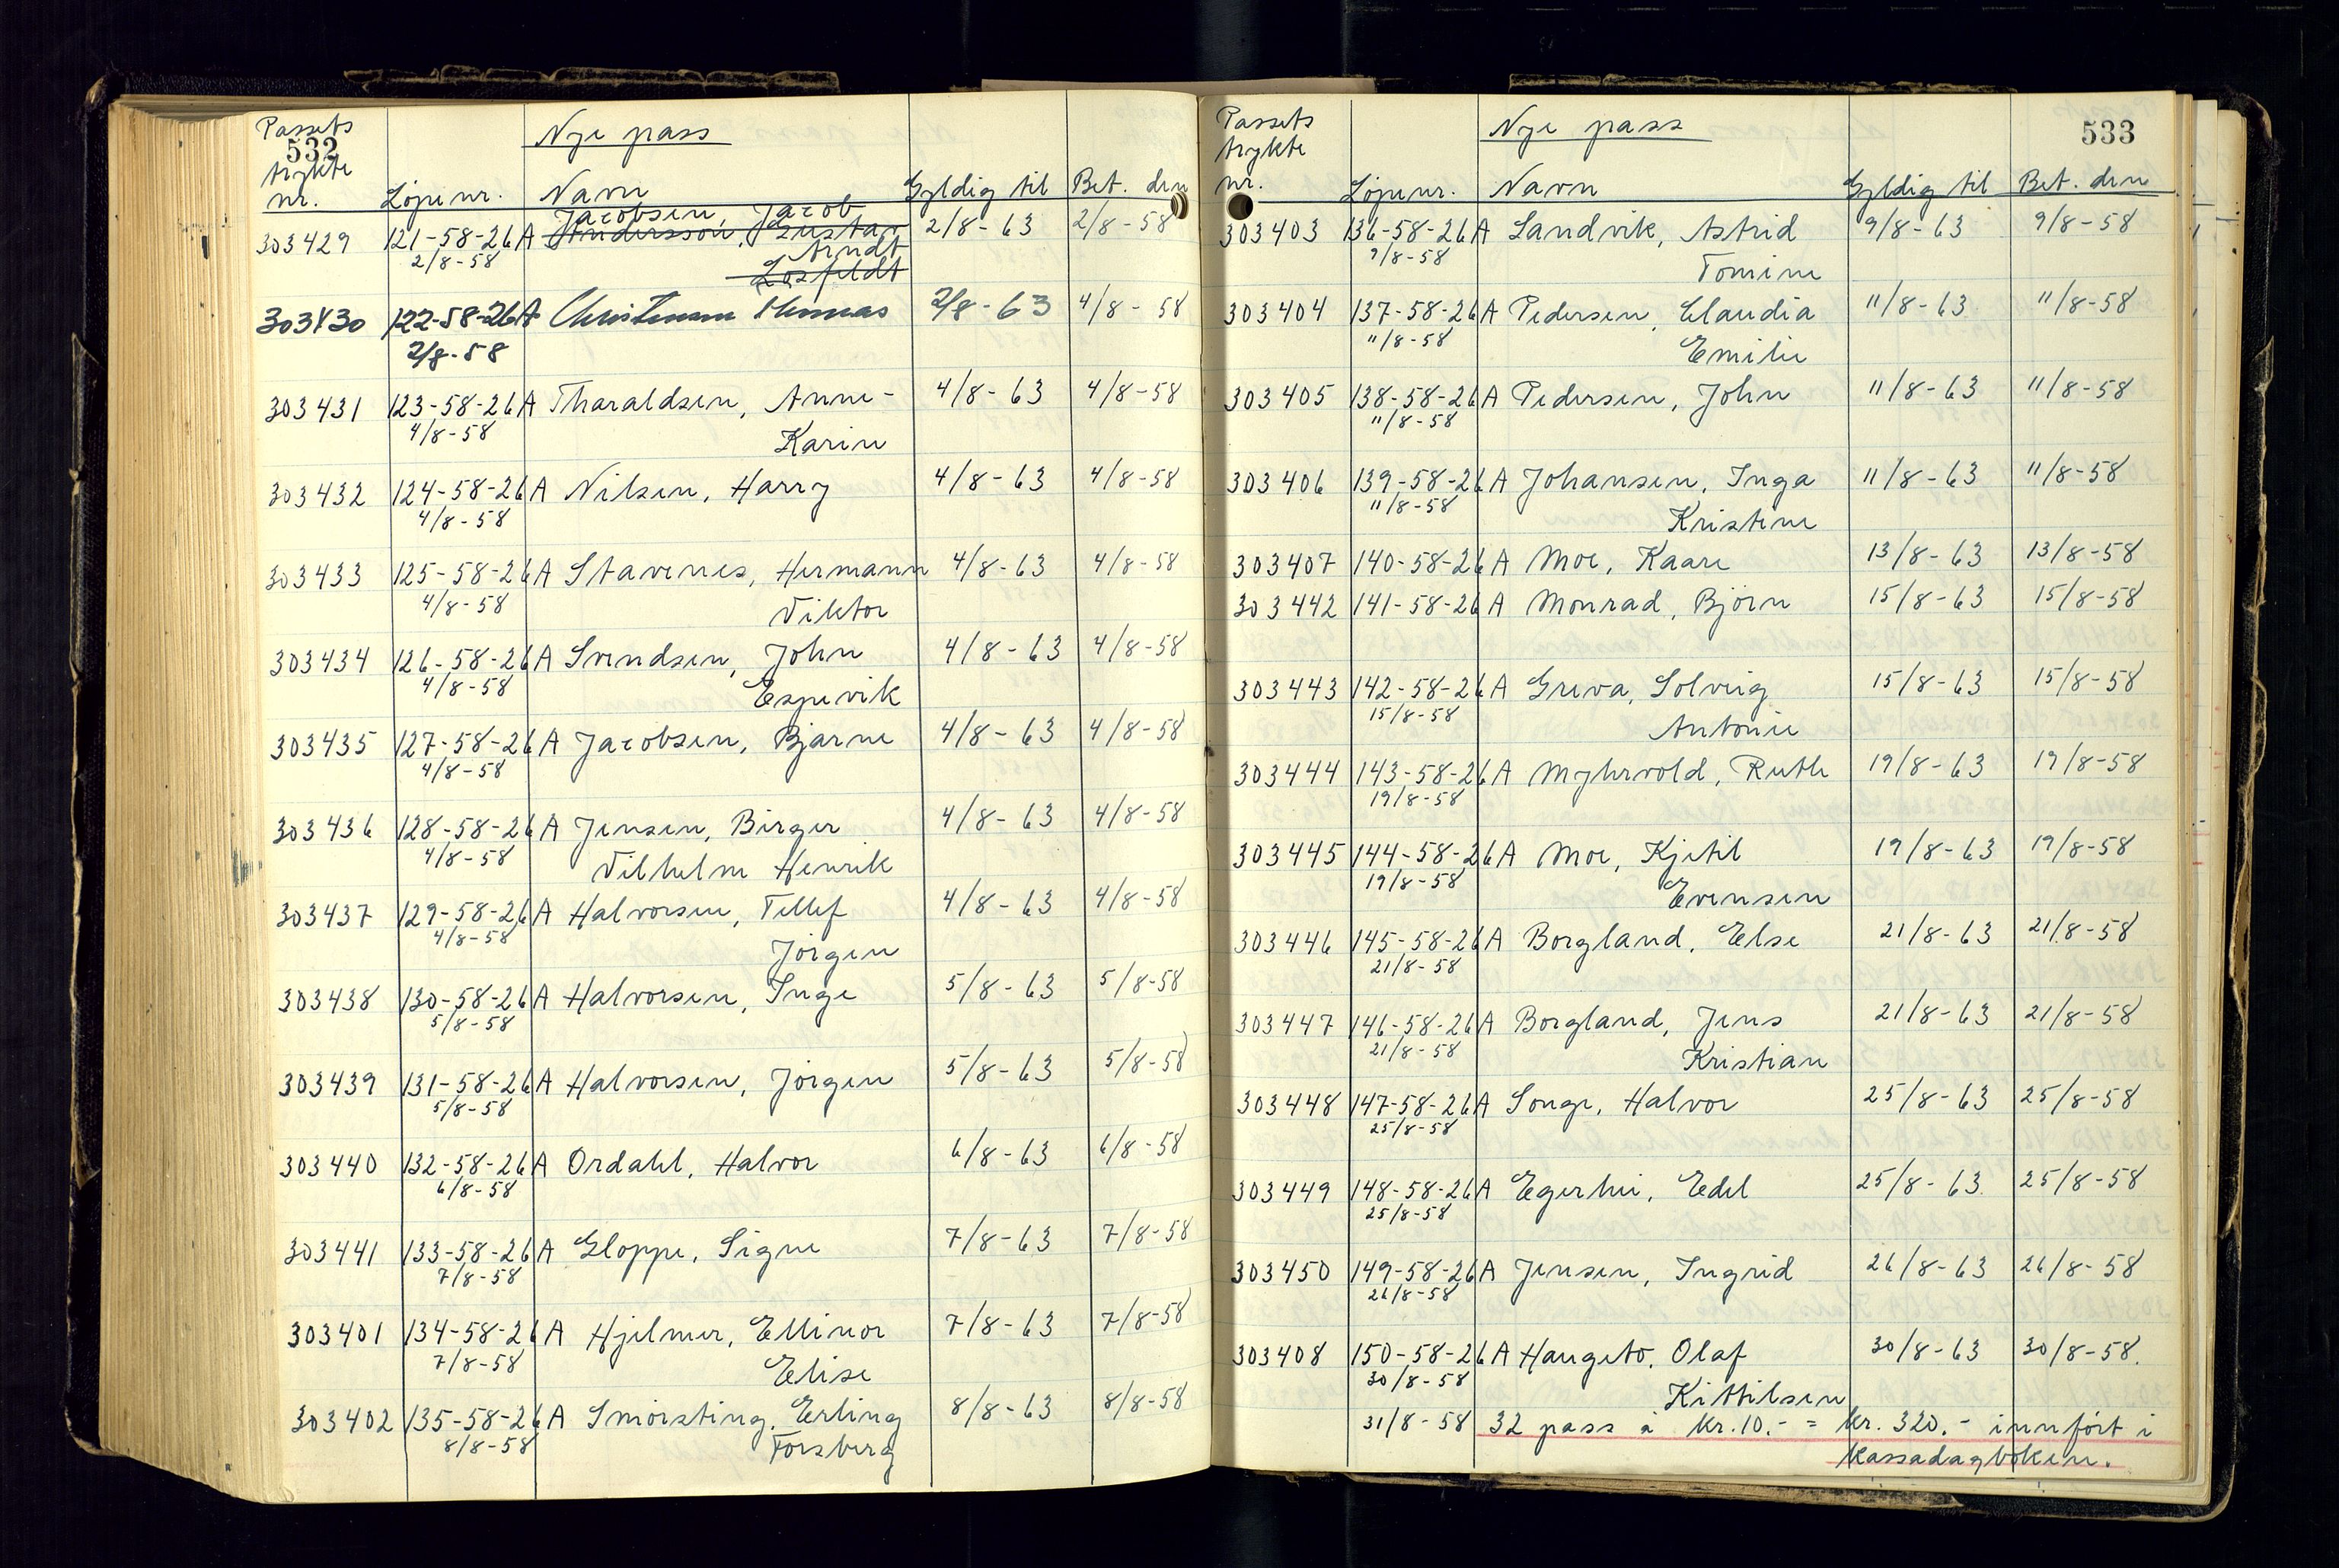 Passets
532
trykte
nr. Löpenr. Navn Gyldig til Bet. den
Nye pass
303429 121-58-26A Jacobsen, Jacob 2/8-63 2/8-58
Andersson, Gustav
2/8-58 Arndt
Losfeldt
303430 122-58-26A Christensen Thomas 2/8-63 4/8-58
2/8-58
303431 123-58-26A Tharaldsen, Anne- 4/8-63 4/8-58
4/8-58 Karin
303432 124-58-26A Nilsen, Harry 4/8-63 4/8-58
4/8-58
303433 125-58-26A Stavenes, Hermann 4/8-63 4/8-58
4/8-58 Viktor
303434 126-58-26A Svendsen, John 4/8-63 4/8-58
4/8-58 Espevik
303435 127-58-26A Jacobsen, Bjarne 4/8-63 4/8-58
4/8-58
303436 128-58-26A Jensen, Birger 4/8-63 4/8-58
4/8-58 Vilhelm Henrik
303437 129-58-26A Halvorsen, Tellef 4/8-63 4/8-58
4/8-58 Jörgen
303438 130-58-26A Halvorsen, Inge 5/8-63 5/8-58
5/8-58
303439 131-58-26A Halvorsen, Jörgen 5/8-63 5/8-58
5/8-58
303440 132-58-26A Ordahl, Halvor 6/8-63 6/8-58
6/8-58
303441 133-58-26A Gloppe, Signe 7/8-63 7/8-58
7/8-58
303401 134-58-26A Hjelmer, Ellinor 7/8-63 7/8-58
7/8-58 Elise
303402 135-58-26A Smörsting, Erling 8/8-63 8/8-58
8/8-58 Forsberg
Passets
trykte
nr. Löpenr. Navn Gyldig til Bet. den
Nye pass
533
303403 136-58-26A Landvik, Astrid 9/8-63 9/8-58
9/8-58 Tomine
303404 137-58-26A Pedersen, Claudia 11/8-63 11/8-58
11/8-58 Emilie
303405 138-58-26A Pedersen, John 11/8-63 11/8-58
11/8-58
303406 139-58-26A Johansen, Inga 11/8-63 11/8-58
11/8-58 Kristine
303407 140-58-26A Moe, Kaare 13/8-63 13/8-58
303442 141-58-26A Monrad, Björn 15/8-63 15/8-58
303443 142-58-26A Greva, Solveig 15/8-63 15/8-58
15/8-58 Antonie
303444 143-58-26A Myhrvold, Ruth 19/8-63 19/8-58
19/8-58
303445 144-58-26A Moe, Kjetil 19/8-63 19/8-58
19/8-58 Evensen
303446 145-58-26A Borgland, Else 21/8-63 21/8-58
21/8-58
303447 146-58-26A Borgland, Jens 21/8-63 21/8-58
21/8-58 Kristian
303448 147-58-26A Songe, Halvor 25/8-63 25/8-58
25/8-58
303449 148-58-26A Egerhei, Edel 25/8-63 25/8-58
25/8-58
303450 149-58-26A Jensen, Ingrid 26/8-63 26/8-58
26/8-58
303408 150-58-26A Haugetö, Olaf 30/8-63 30/8-58.
30/8-58 Kittilsen
31/8-58 32 pass à kr.10.- = kr. 320.- innfört i
kassadagboken.